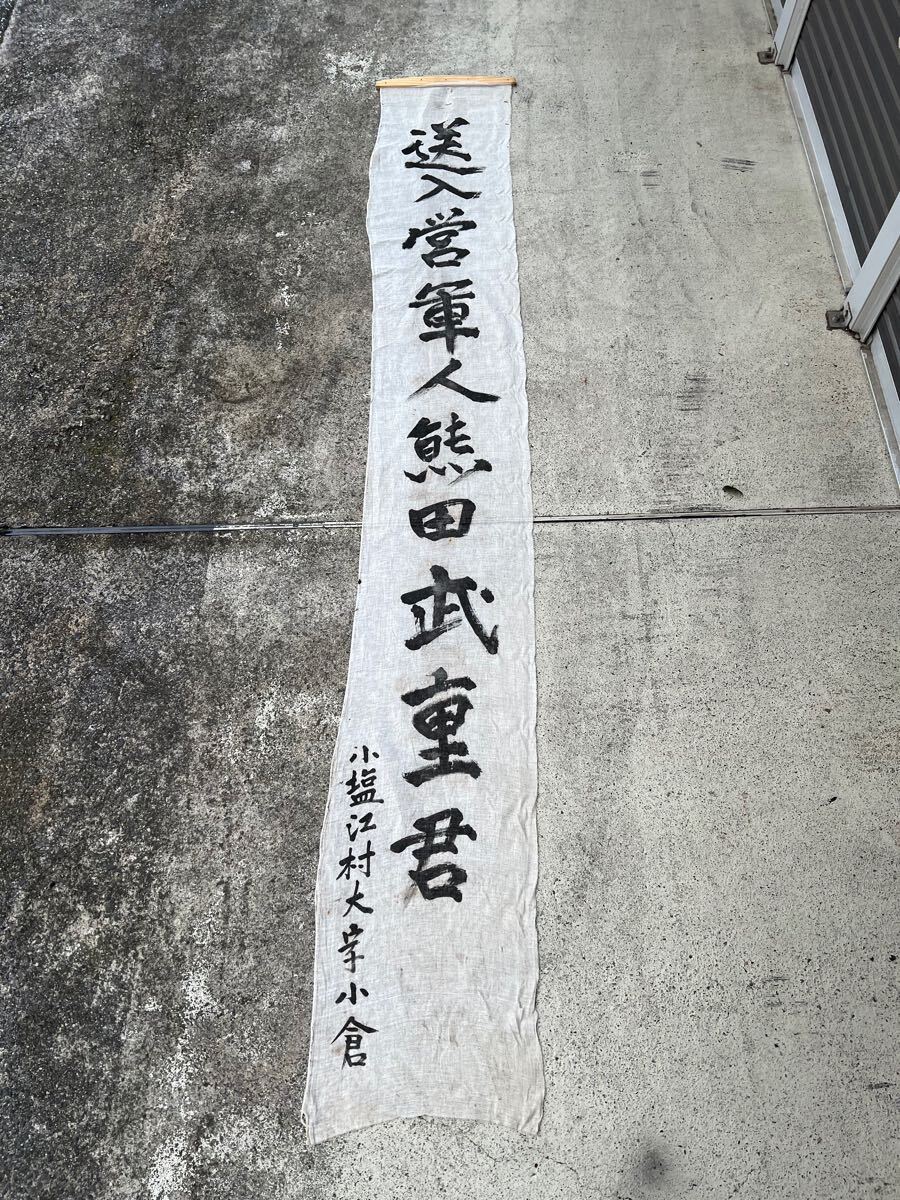 送入営軍人熊田武重君
小塩江村大字小倉